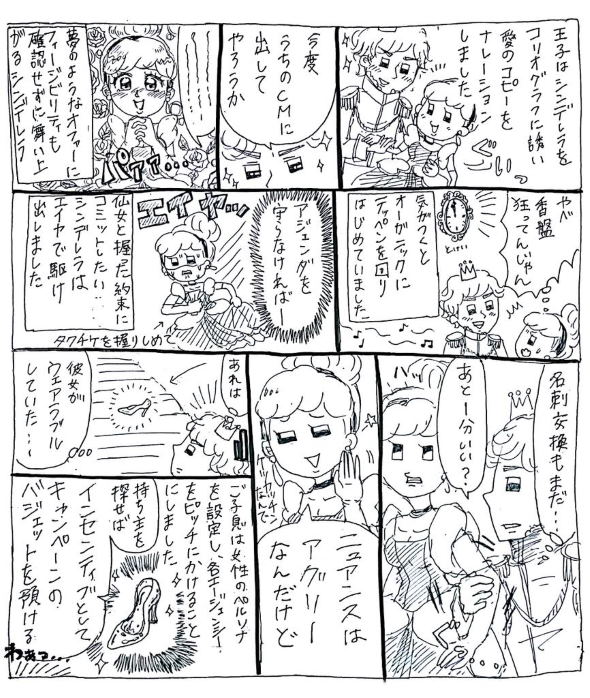 王子はシンデレラを
コリオグラフに誘い
愛のコピーを
ナレーション
しました
ぐいっ
今度
うちのCMに
出して
やろうか
夢のようなオファーに
フィージビリティも
確認せずに舞い上
がるシンデレラ
パァァ…
やべ
香盤
狂ってんじゃん
とけい
気がつくと
オーガニックに
テッペンを回り
はじめていました
アジェンダを
守らなければー
エイヤッ
仙女と握った約束に
コミットしたい…
シンデレラは
エイヤで駆け
出しました
タクチケを握りしめ
名刺交換もまだ…
あと一分いい?
バッ
ケツカッチン
なんで
ニュアンスは
アグリー
なんだけど
あれは
彼女が
ウェアラブル
していた…
ご子息は女性のペルソナ
を設定し、各エージェンシー
をピッチにかけること
にしました
持ち主を
探せば
インセンティブとして
キャンペーンの
バジェットを預ける
わぁっ…